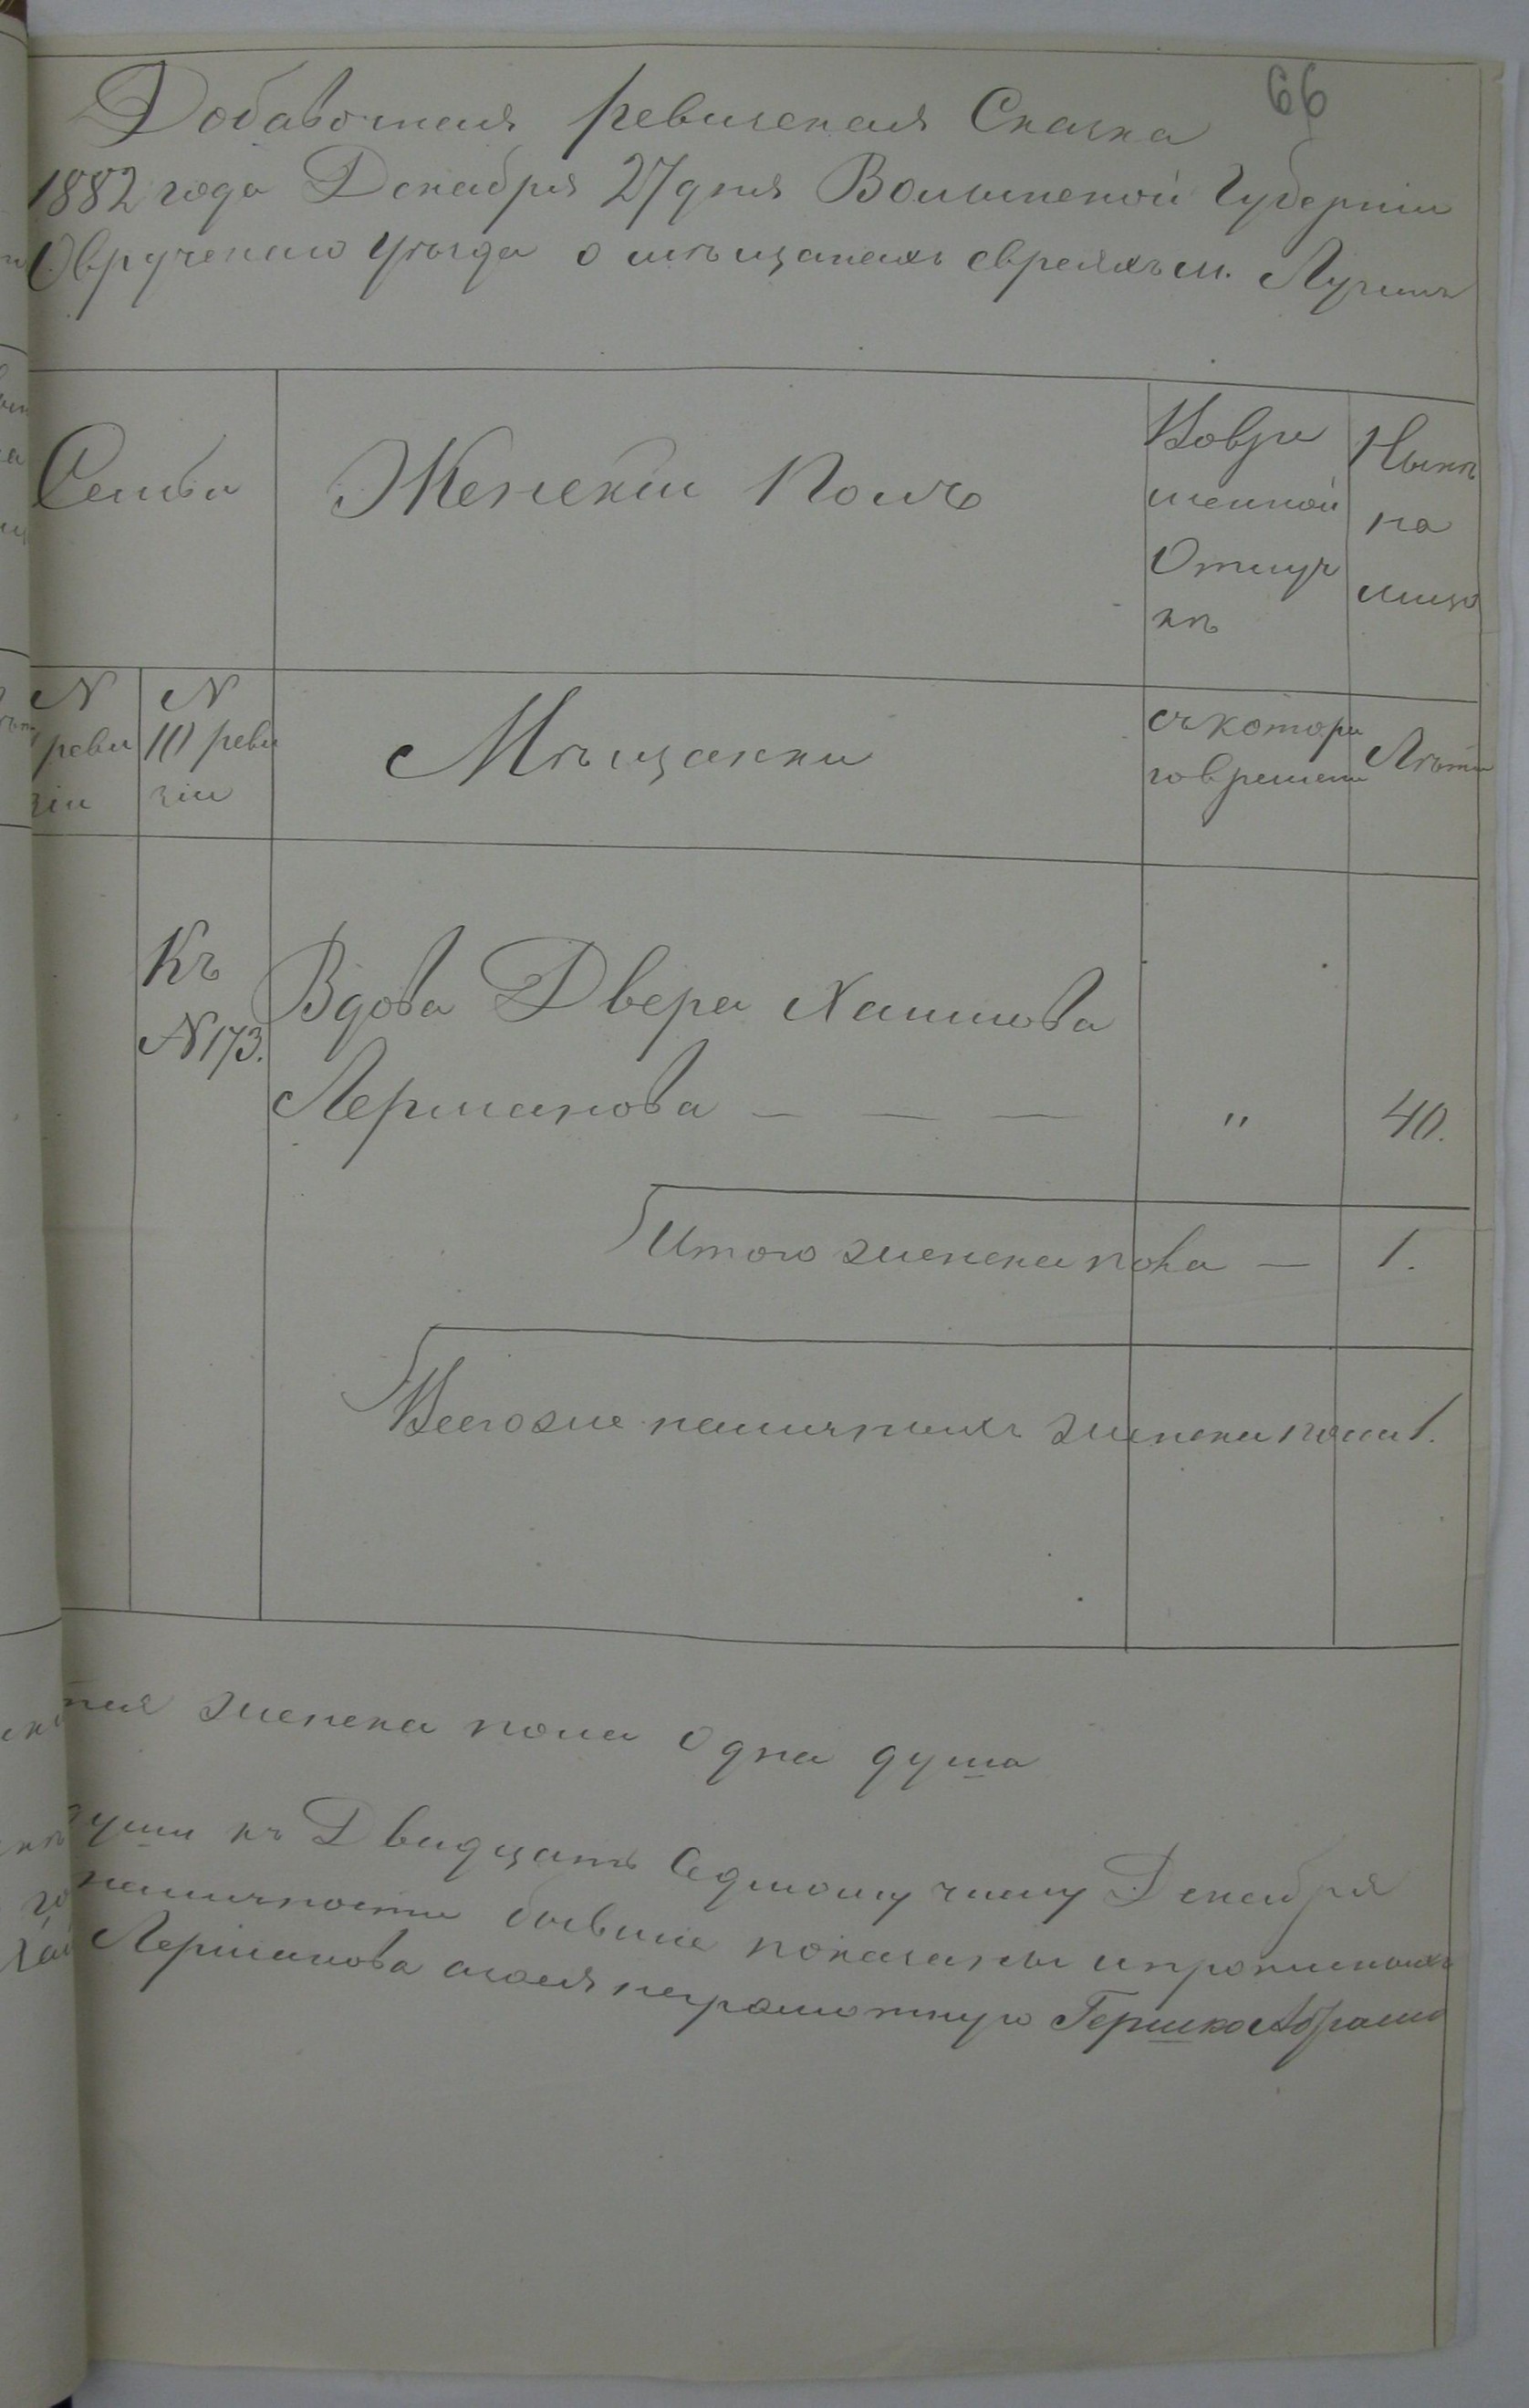 66
Добавочная ревизская Сказка
1882 года Декабря 27 дня Волынской Губерніи
Овручскаго уѣзда о мѣщанахъ евреяхъ м. Лугинъ
Семьи
Женскій Полъ
Вовре
менной
Отлуч
кѣ
Нынѣ
на
лицо
N
реви
зіи
N
10 реви
зіи
Мѣщанки
съ котора
го времени
Лѣта
Къ
N 173.
Вдова Двера Хаимова
Лерманова — — — " 40.
Итого женска пола — 1.
Всего же наличныхъ женска пола 1.
женска пола Одна душа
души къ Двадцать Седмому числу Декабря
наличности бывшіе показаны и прописныхъ
Лерманова а за нея неграмотную Гершко Абрамо